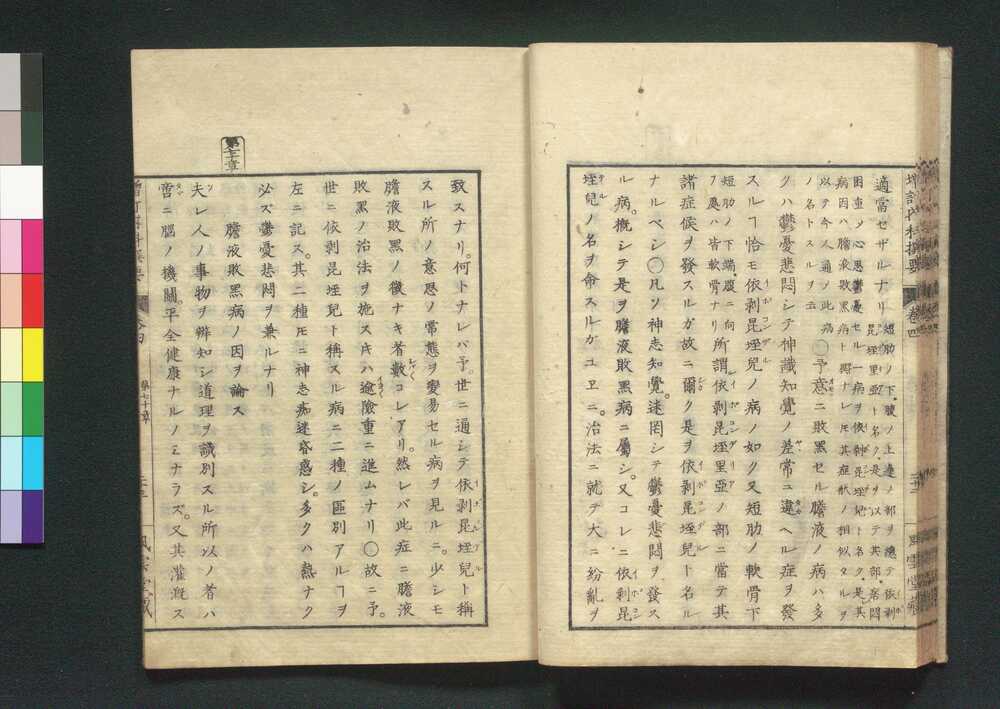 適當セザルナリ 短肋ノ下。腰ノ上邊ノ部ヲ總テ依剥
昆垤里亜ト名ク。是ヲ以テ其部。痞悶
困重〆心思鬱憂セル一病ヲ依剥昆垤兒ト名ク。是其
病因ハ膽液敗黒病ト
以テ今人通〆此病
ノ名トスルヲ云
〇予意ニ敗黒セル膽液ノ病ハ多
クハ鬱憂悲悶シテ神識知覺ノ差常ニ違ヘル症ヲ發
スルヿ恰モ依剥昆垤兒ノ病ノ如ク又短肋ノ軟骨下
短肋ノ下端。
フ處ハ皆軟骨ナリ
所謂依剥昆垤里亜ノ部ニ當テ其
諸症候ヲ發スルガ故ニ爾ク是ヲ依剥昆垤兒ト名ル
ナルベシ〇凡ソ神志知覺。迷罔シテ鬱憂悲悶ヲ發ス
ル病。概シテ是ヲ膽液敗黒病ニ屬シ。又コレニ依剥昆
垤兒ノ名ヲ命スルガユヱニ。治法ニ就テ大ニ紛亂ヲ
致スナリ。何トナレバ予。世ニ通シテ依剥昆垤兒ト稱
スル所ノ意思ノ常態ヲ變易セル病ヲ見ルニ。少シモ
膽液敗黒ノ徴ナキ者數コレアリ。然レバ此症ニ膽液
敗黒ノ治法ヲ施ス𪜈ハ逾險重ニ進ムナリ〇故ニ予。
世ニ依剥昆垤兒ト稱スル病ニ二種ノ區別アルヿヲ
左ニ記ス。其二種𪜈ニ神志痴迷昏惑シ。多クハ熱ナク
必ズ鬱憂悲悶ヲ兼ルナリ
第七十章
膽液敗黒病ノ因ヲ論ス
夫レ人ノ事物ヲ辨知シ道理ヲ識別スル所以ノ者ハ
啻ニ腦ノ機關平全健康ナルノミナラズ。又其灌漑ス